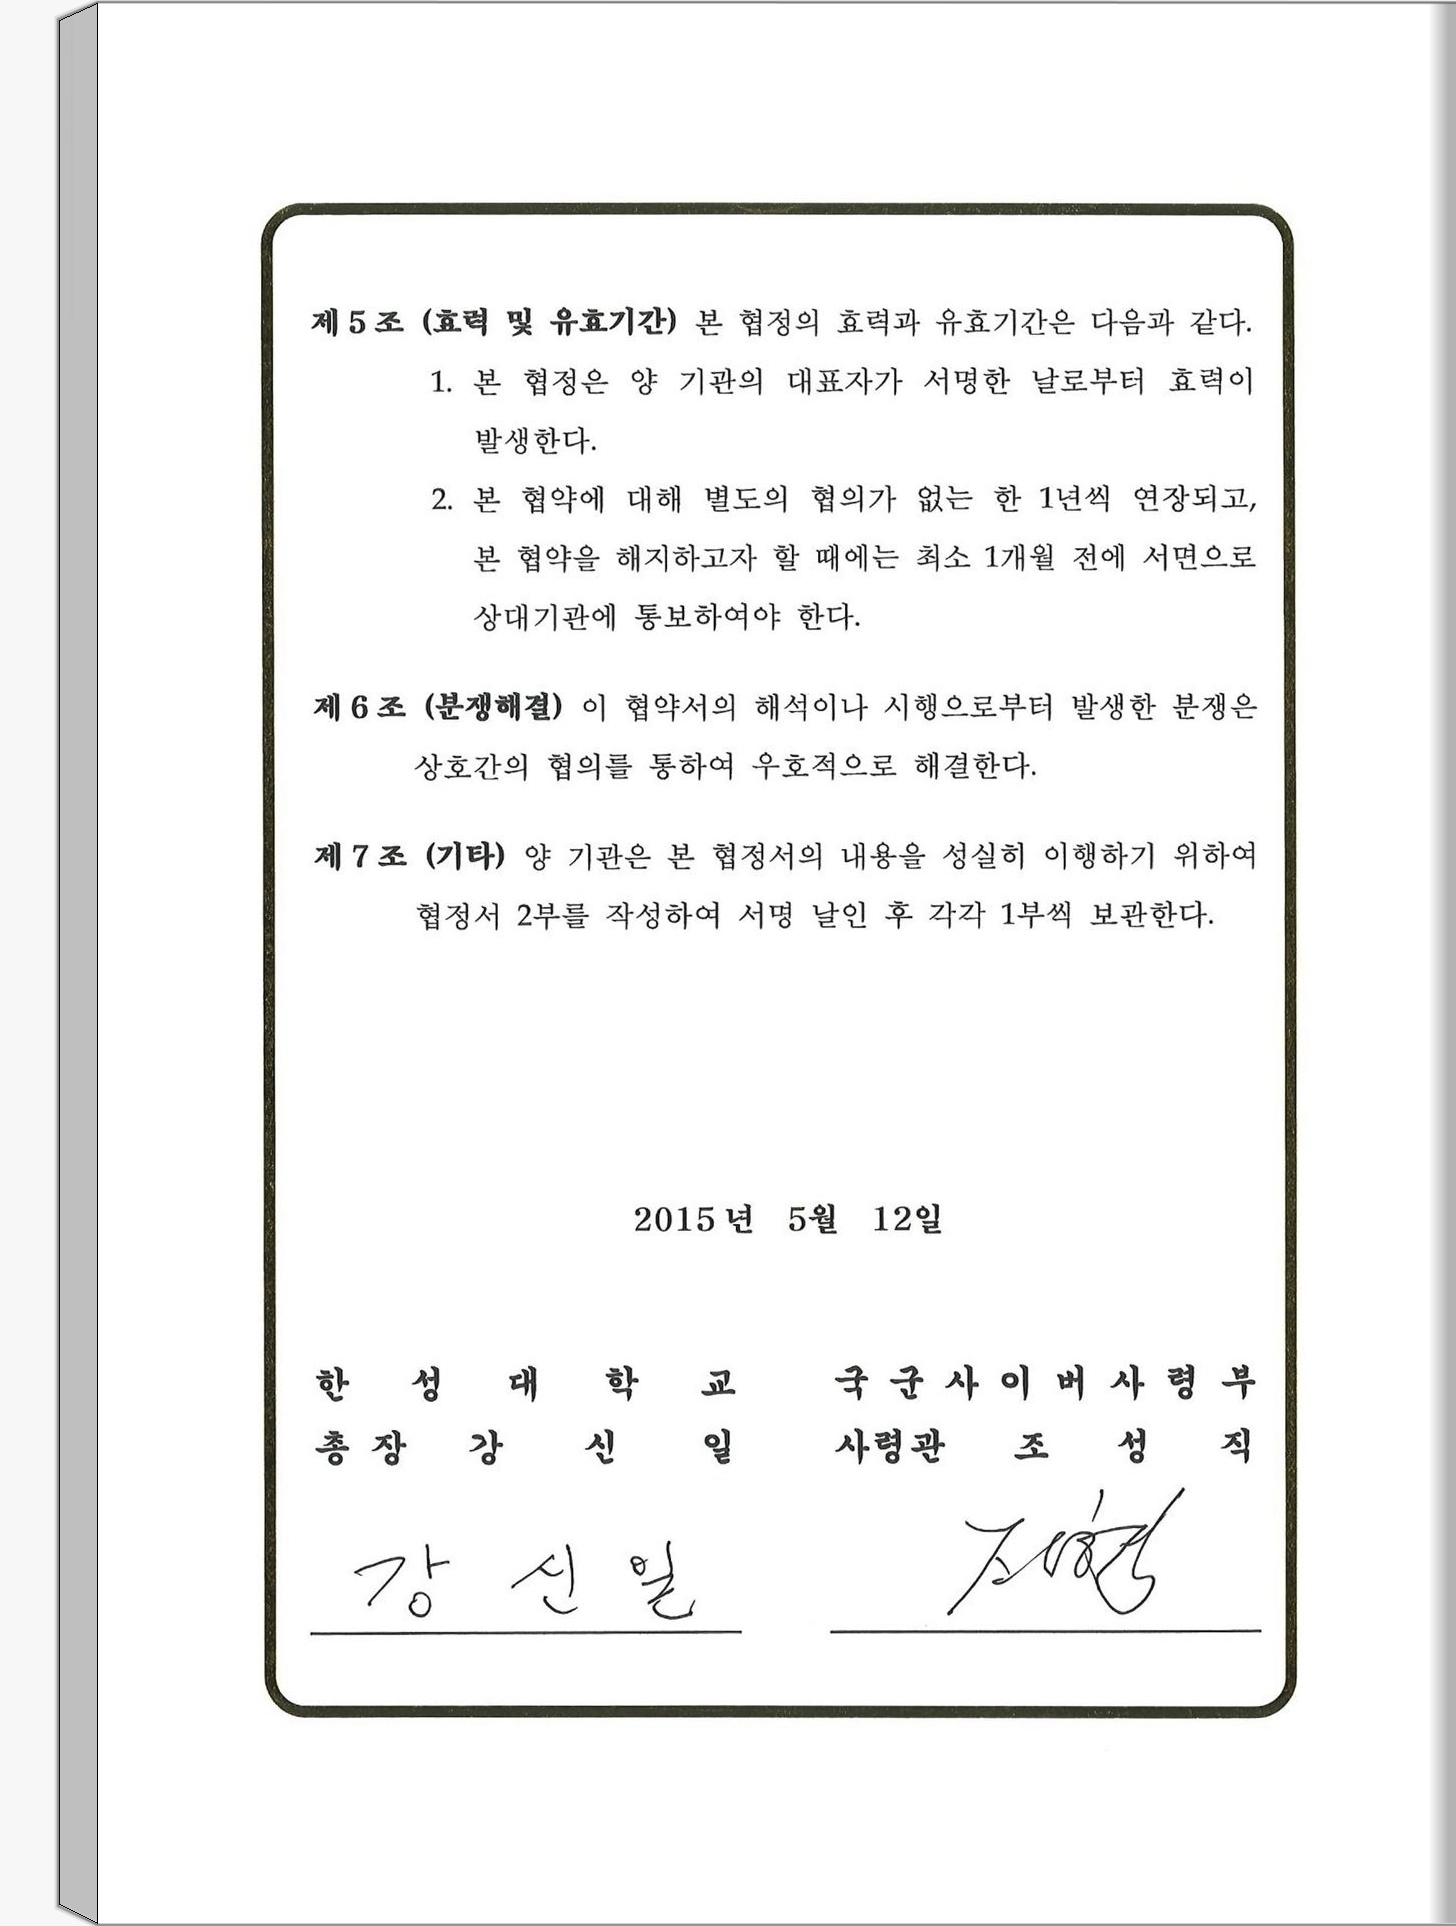 제5조 (효력 및 유효기간) 본 협정의 효력과 유효기간은 다음과 같다.
1. 본 협정은 양 기관의 대표자가 서명한 날로부터 효력이
발생한다.
2. 본 협약에 대해 별도의 협의가 없는 한 1년씩 연장되고,
본 협약을 해지하고자 할 때에는 최소 1개월 전에 서면으로
상대기관에 통보하여야 한다.
제6조 (분쟁해결) 이 협약서의 해석이나 시행으로부터 발생한 분쟁은
상호간의 협의를 통하여 우호적으로 해결한다.
제7조 (기타) 양 기관은 본 협정서의 내용을 성실히 이행하기 위하여
협정서 2부를 작성하여 서명 날인 후 각각 1부씩 보관한다.
2015년 5월 12일
한 성 대 학 교 국군사이버사령부
총장 강 신 일 사령관 조 성 직
강 신 일